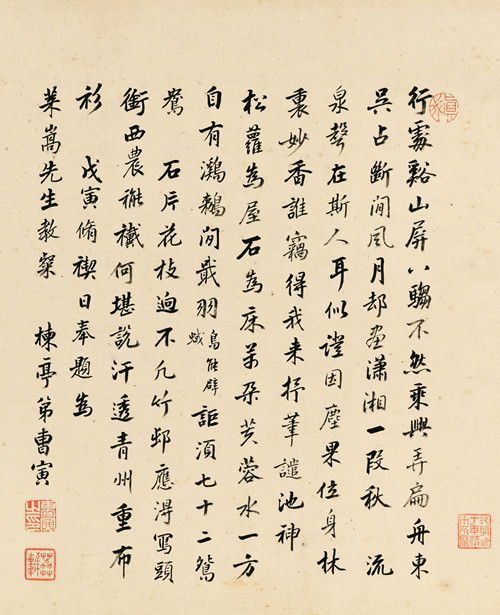 行處谿山屏八騶不然乘興弄扁舟東
吳占斷閒風月却畫瀟湘一段秋 流
泉聲在斯人耳似證因塵果位身林
裏妙香誰竊得我来抒筆讉池神
松蘿為屋石為床萬朵芙蓉水一方
自有鸂鶒閒戢羽鳥能辟蜮詎須七十二鴛
鴦 石片花枝迥不凡竹邨應淂寫頭
銜西農褦襶何堪說汗透青州重布
衫 戊寅脩禊日奉題為
嵩先生教粲 棟亭弟曹寅